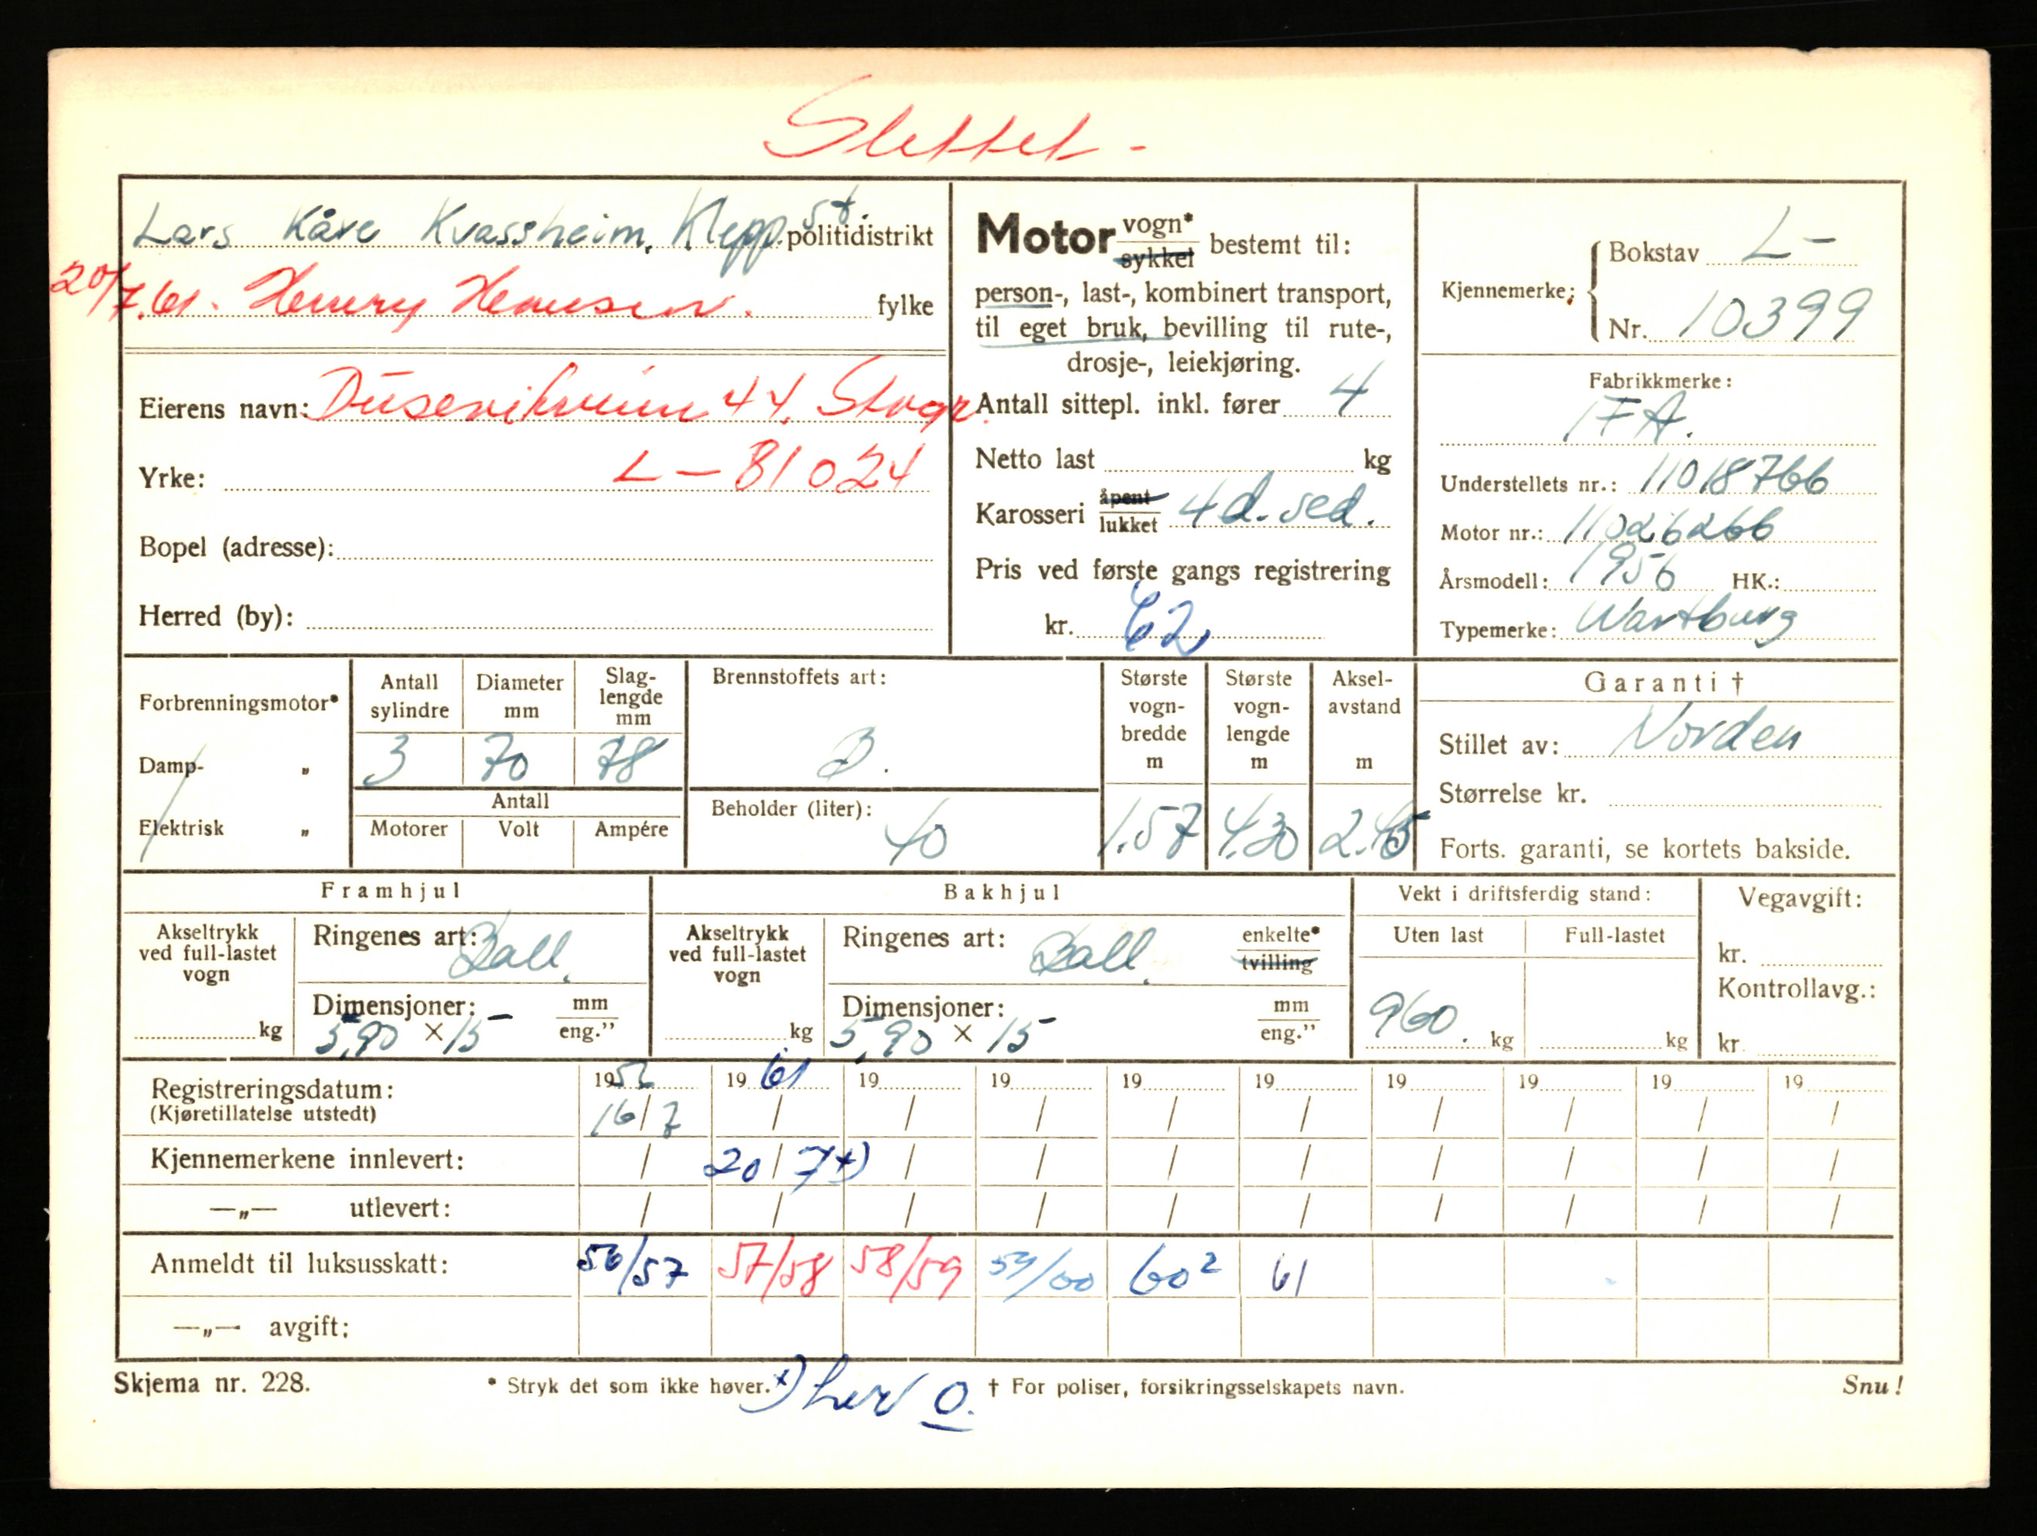 Slettet -
Lars Kåre Kvassheim, Klepp st. politidistrikt
20/7.61. Henry Hansen. fylke
Eierens navn: Dusevikveien 44, Stvgr.
Yrke: L-81024
Bopel (adresse):
Herred (by):
Motor vogn* sykkel bestemt til:
person-, last-, kombinert transport,
til eget bruk, bevilling til rute-,
drosje-, leiekjøring.
Antall sittepl. inkl. fører 4
Netto last kg
Karosseri åpent lukket 4d. sed.
Pris ved første gangs registrering
kr. 62
Kjennemerke: Bokstav L-
Nr. 10399
Fabrikkmerke:
IFA.
Understellets nr.: 11018766
Motor nr.: 11026266
Årsmodell: 1956 HK.:
Typemerke: Wartburg
Forbrenningsmotor*
Damp- „
Elektrisk „
Antall sylindre Diameter mm Slag-lengde mm
3 70 78
Antall
Motorer Volt Ampére
Brennstoffets art:
B.
Beholder (liter):
40
Største vogn-bredde m Største vogn-lengde m Aksel-avstand m
1.57 4.30 2.45
Garanti †
Stillet av: Norden
Størrelse kr.
Forts. garanti, se kortets bakside.
Framhjul
Akseltrykk ved full-lastet vogn
kg
Ringenes art: Ball.
Dimensjoner: mm eng.”
5,90 × 15
Bakhjul
Akseltrykk ved full-lastet vogn
kg
Ringenes art: Ball. enkelte* tvilling
Dimensjoner: mm eng.”
5,90 × 15
Vekt i driftsferdig stand:
Uten last Full-lastet
960. kg kg
Vegavgift:
kr.
Kontrollavg.:
kr.
Registreringsdatum: 1956 1961 19 19 19 19 19 19 19 19
(Kjøretillatelse utstedt) 16/7 / / / / / / / / /
Kjennemerkene innlevert: / 20/7 x) / / / / / / / /
—„— utlevert: / / / / / / / / / /
Anmeldt til luksusskatt: 56/57 57/58 58/59 59/60 60² 61
—„— avgift:
Skjema nr. 228. * Stryk det som ikke høver. x) O. † For poliser, forsikringsselskapets navn. Snu!